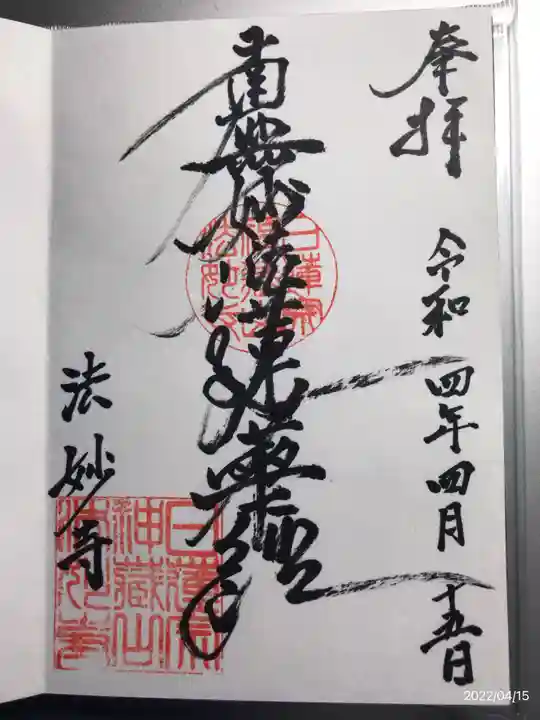 奉拝
令和四年四月十五日
南無妙法蓮華経
法妙寺
日蓮宗
神嶽山
法妙寺
2022/04/15